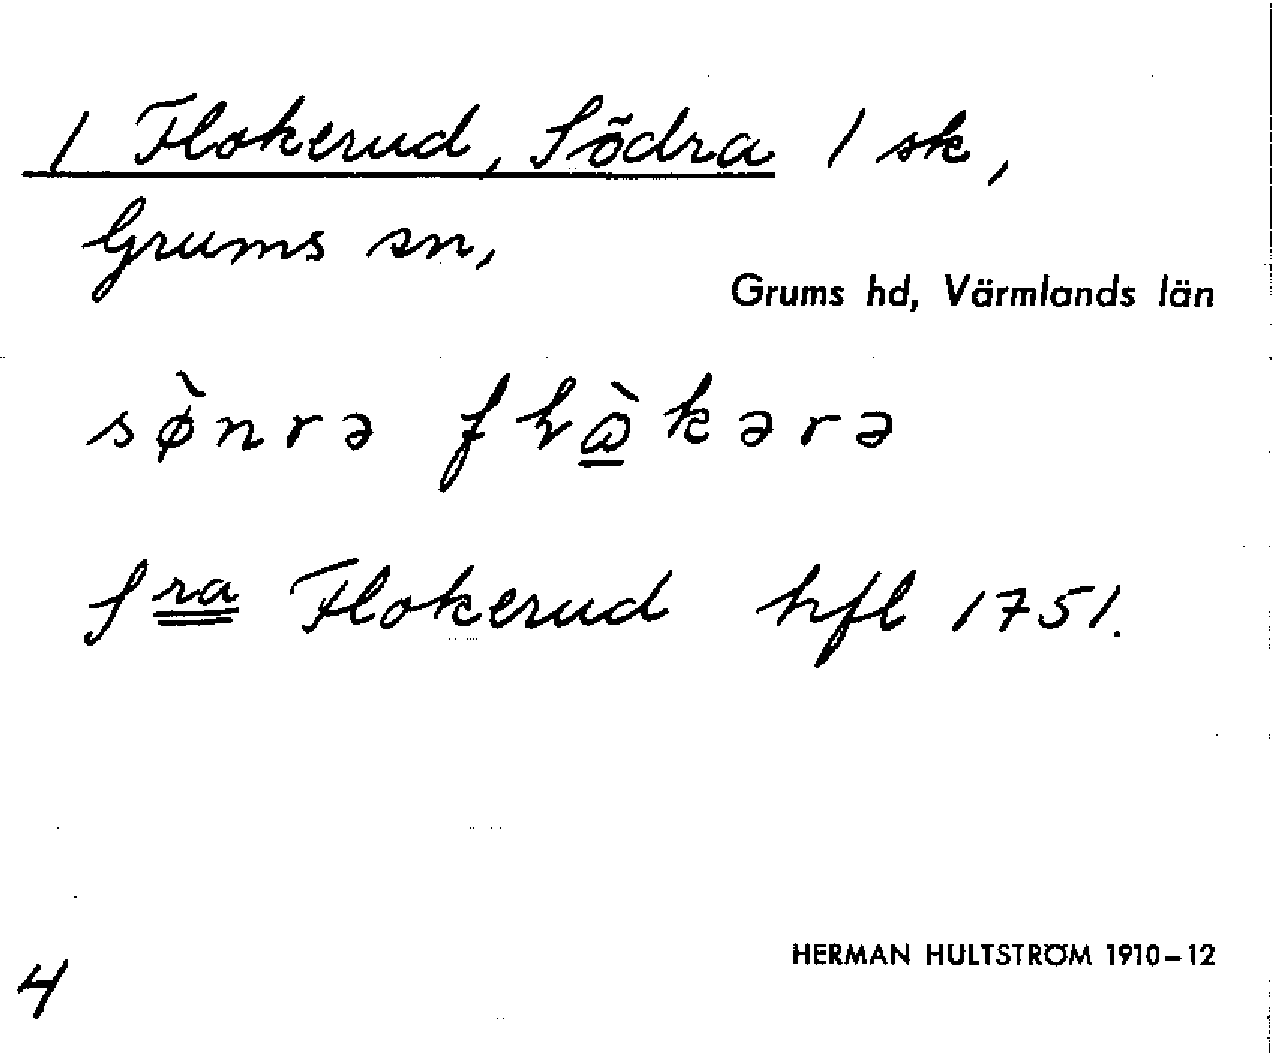 / Flokerud, Södra / sk,
Grums sn,
Grums hd, Värmlands län
sø̀nrə fɫ@̲̀kərə
Sra Flokerud hfl 1751.
4
HERMAN HULTSTRÖM 1910–12